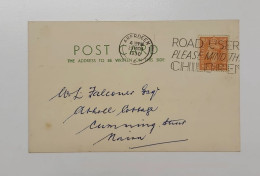 ABERDEEN
POST CARD
THE ADDRESS TO BE WRITTEN ON THIS SIDE
ROAD USERS
PLEASE MIND THE
CHILDREN
W L Falconer Esq
Atholl Cottage
Cumming Street
Nairn